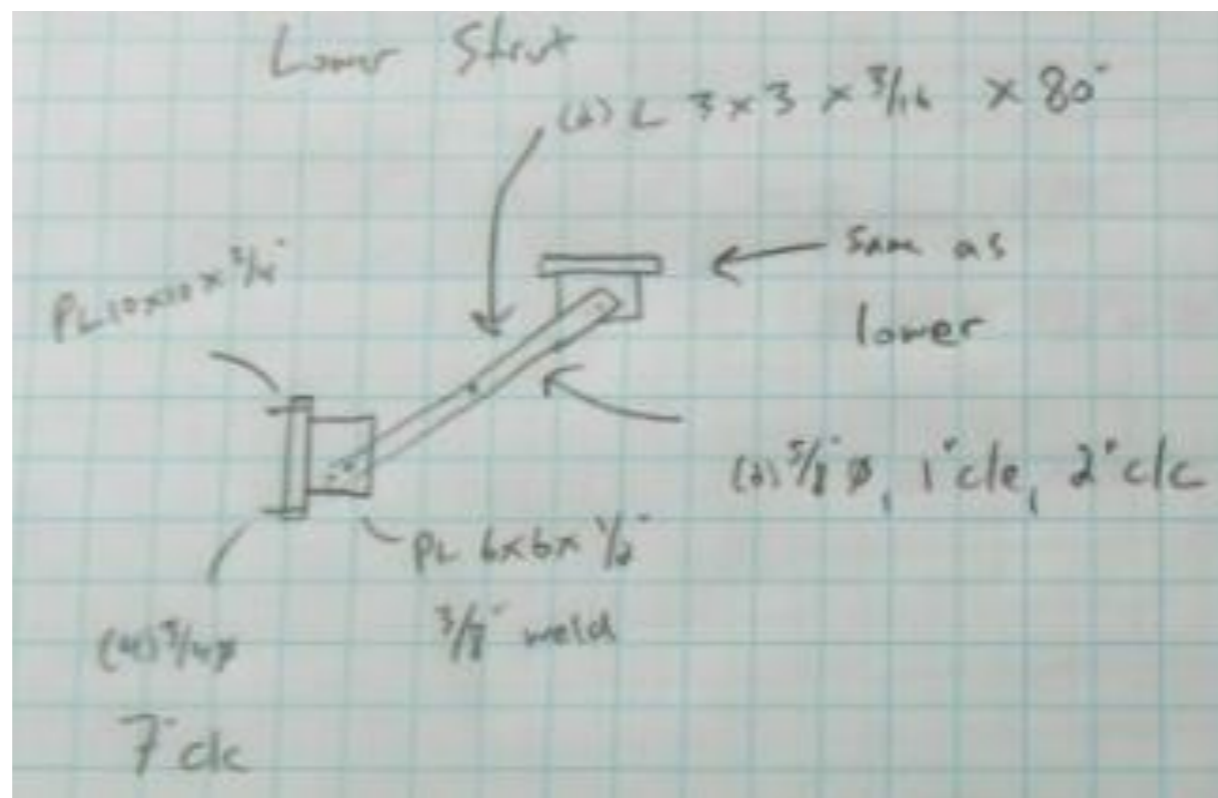 Lower Strut
(2) L 3x3 x 3/16 x 80"
PL 10x10 x 3/4"
Same as
lower
(2) 5/8"ø, 1" c/e, 2" c/c
PL 6x6x 1/2"
3/8" weld
(4) 3/4ø
7" c/c